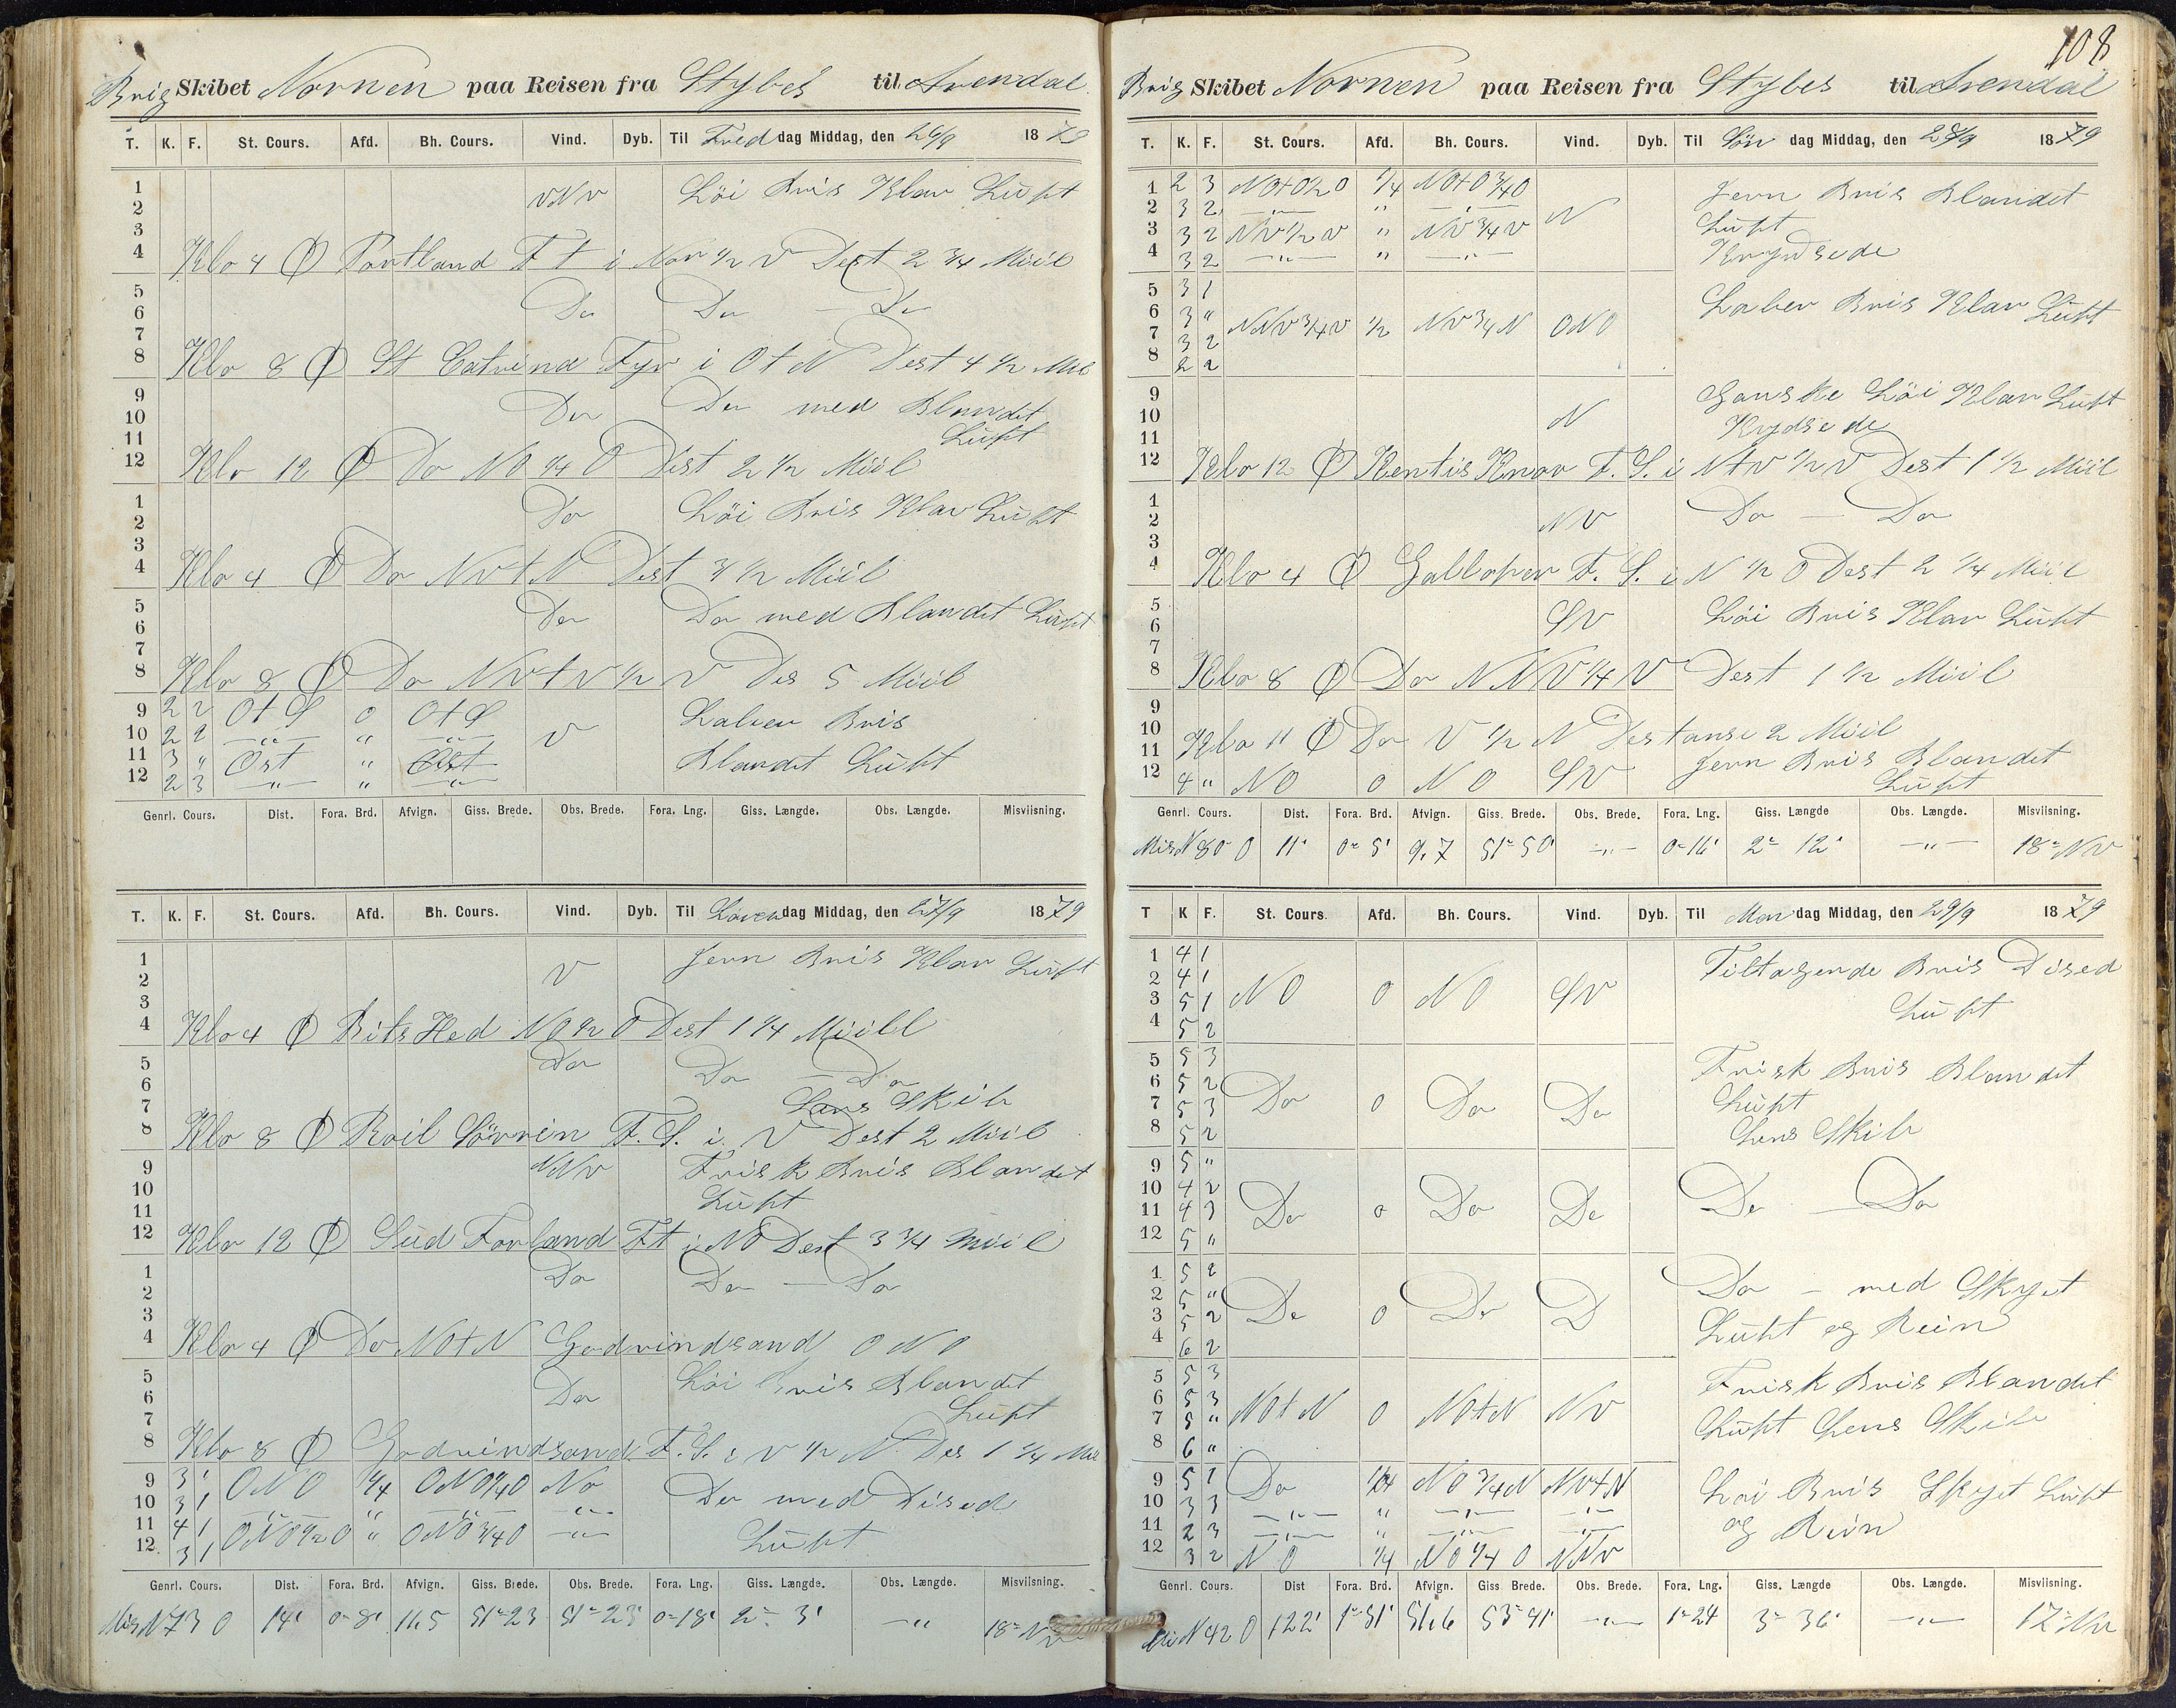 Brig Skibet Nornen paa Reisen fra Stybes til Arendal
T. K. F. St. Cours. Afd. Bh. Cours. Vind. Dyb. Til Freddag Middag, den 26/9 1879
1 vNv Löi Bris Klar Luft
2
3
4 Klo 4 Ф Portland F t i Nor 1/2 V Dest 2 3/4 Miil
5
6 Do Do — Do
7
8 Klo 8 Ф St Catrind Fyr i O t N Dest 4 1/2 Mil
9
10 Do Do med Blandet
11 Luft
12 Klo 12 Ф Do NO 1/4 O Dist 2 1/2 Miil
1 Do Löi Bris Klar Luft
2
3
4 Klo 4 Ф Do NvtN Dest 3 1/2 Miil
5
6 Do Do med Blandet Luft
7
8 Klo 8 Ф Do Nvtv 1/2 V Des 5 Miil
9 2 2 OtS 0 OtS Laber Bris
10 2 2 —"— " —"— V
11 3 " Ost " Ost Blandet Luft
12 2 3 —"— " —"—
Genrl. Cours. Dist. Fora. Brd. Afvign. Giss. Brede. Obs. Brede. Fora. Lng. Giss. Længde. Obs. Længde. Misviisning.
T. K. F. St. Cours. Afd. Bh. Cours. Vind. Dyb. Til Löverdag Middag, den 27/9 1879
1 V Jevn Bris Klar Luft
2
3
4 Klo 4 Ф Bits Hed NO 1/2 O Dest 1 1/4 Miill
5 Do Do — Do
6
7 Lens Skib
8 Klo 8 Ф Roil Sövrin F. S. i V Dest 2 Miil
9 NNv Frisk Bris Blandet
10
11 Luft
12 Klo 12 Ф Sud Forland Ft i NO Dest 3 3/4 Miil
1 Do Do — Do
2
3
4 Klo 4 Ф Do NOtN Godvindsand ONO
5 Löi Bris Blandet
6 Do
7 Luft
8 Klo 8 Ф Godvindsand F. S. i V 1/2 N Des 1 1/4 Mil
9 3 1 ONO 1/4 ONO 1/4 O No
10 3 1 —"— " —"— —"— Do med Dised
11 4 1 ONO 1/2 O " ONO 3/4 O —"—
12 3 1 Luft
Genrl. Cours. Dist. Fora. Brd. Afvign. Giss. Brede. Obs. Brede. Fora. Lng. Giss. Længde. Obs. Længde. Misviisning.
Mis N 73 O 14' 0=8' 11,5 51=23 51=23' 0=18' 2= 3' —" 18=Nv
108
Brig Skibet Nornen paa Reisen fra Stybes til Arendal
T. K. F. St. Cours. Afd. Bh. Cours. Vind. Dyb. Til Sön dag Middag, den 28/9 1879
1 2 3 NOtO 1/2 O 1/4 NOtO 3/4 O Jevn Bris Blandet
2 3 2 —"— " —"— N
3 3 2 NV 1/2 V " NV 3/4 V Luft
4 3 2 —"— " —"— Krydsede
5 3 1 Laber Bris Klar Luft
6 3 " NNV 3/4 V 1/2 NV 3/4 N ONO
7 3 2
8 2 2
9 Ganske Löi Klar Luft
10 N Krydsede
11
12 Klo 12 Ф Kentis Knor F. S. i NtV 1/2 V Dest 1 1/2 Miil
1
2 NV Do — Do
3
4 Klo 4 Ф Galloper F. S. i N 1/2 O Dest 2 1/4 Miil
5
6 SV Löi Bris Klar Luft
7
8 Klo 8 Ф Do NNV 1/4 V Dest 1 1/2 Miil
9
10
11 Klo 11 Ф Do V 1/2 N Destanse 2 Miil
Jevn Bris Blandet
12 4 " NO 0 NO SV Luft
Genrl. Cours. Dist. Fora. Brd. Afvign. Giss. Brede. Obs. Brede. Fora. Lng. Giss. Længde Obs. Længde. Misviisning.
Mis N 80 O 11' 0=5' 9,7 51=50' —"— 0=16' 2= 12' —"— 18=Nv
T K F. St. Cours. Afd. Bh. Cours. Vind. Dyb. Til Man dag Middag, den 29/9 1879
1 4 1 Tiltagende Bris Dised
2 4 1
3 5 1 NO 0 NO SV Luft
4 5 2
5 5 3 Frisk Bris Blandet
6 5 2
7 5 3 Do 0 Do Do Luft
8 5 2 Lens Skib
9 5 "
10 4 2
11 4 3 Do 0 Do Do Do — Do
12 5 "
1 5 2 Do — med Skyet
2 5 "
3 5 2 Do 0 Do D Luft og Rein
4 6 2
5 5 3 Frisk Bris Blandet
6 5 3
7 5 " NOtN 0 NOtN NV Luft Lens Skib
8 6 "
9 5 1 Do 1/4 NO 3/4 N NvtN Löi Bris Skyet Luft
10 3 3 —"— " —"— —"—
11 2 3 —"— " —"— —"— og Rein
12 3 2 NO 1/4 NO 1/4 O NNv
Genrl. Cours. Dist Fora. Brd. Afvign. Giss. Brede. Obs. Brede. Fora. Lng. Giss. Længde Obs. Længde. Misviisning.
Mi N 42 O 122' 1=31' 51,6 53=41' —"— 1=24 3= 36' —"— 17=Nv